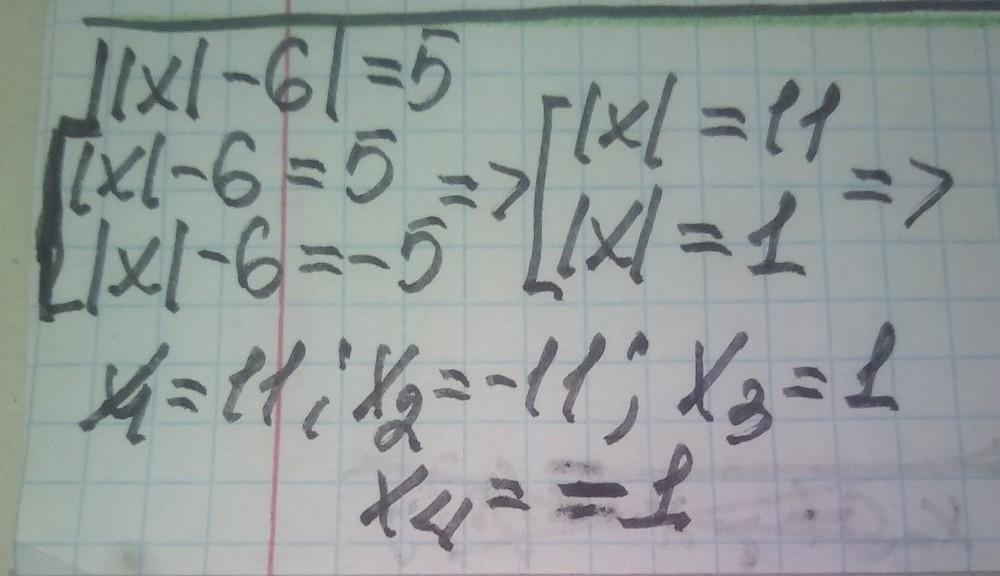 ||x|-6|=5
[|x|-6=5 => [|x|=11 =>
|x|-6=-5 |x|=1
x₁=11; x₂=-11; x₃=1
x₄=-1